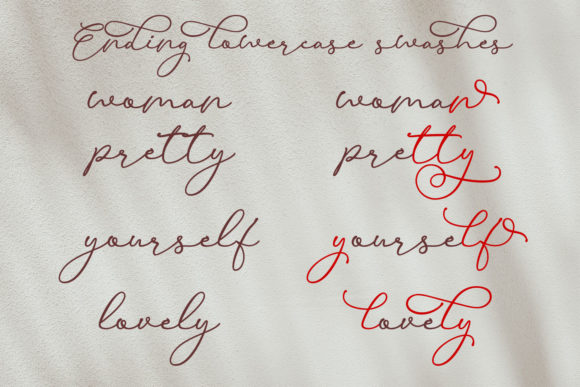 Ending lowercase swashes
woman woman
pretty pretty
yourself yourself
lovely lovely